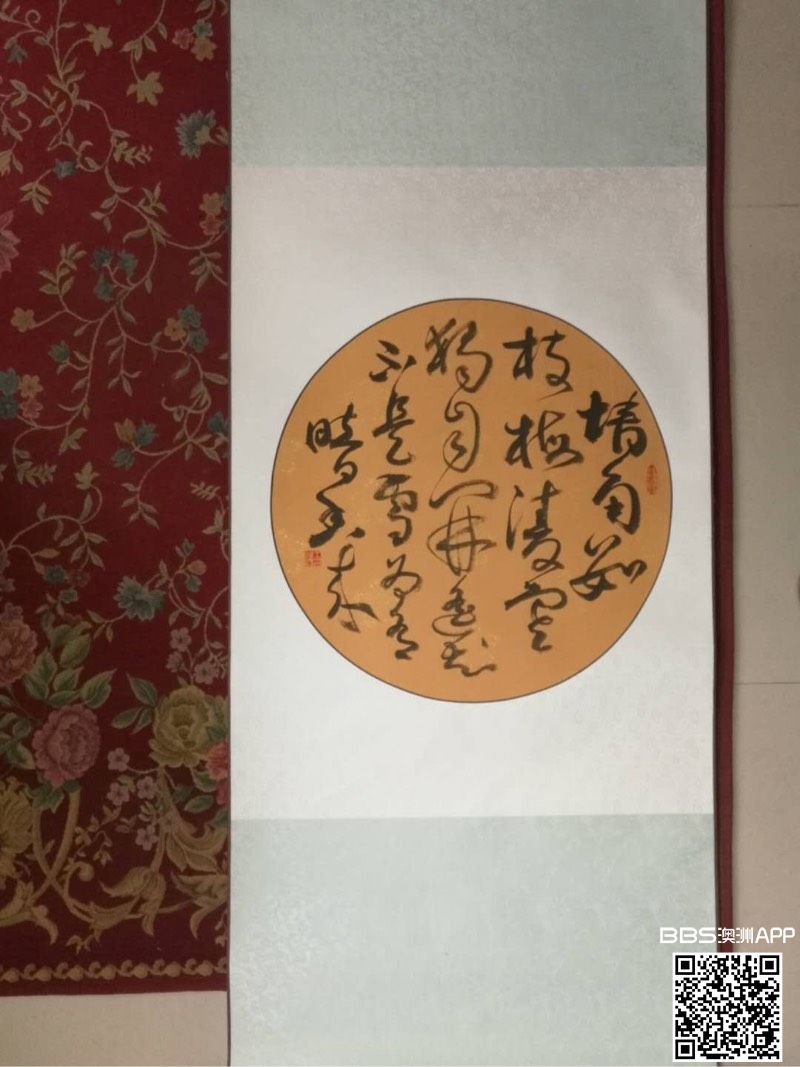 墙角数
枝梅凌寒
獨自開遥知
不是雪为有
暗香来
BBS澳洲APP